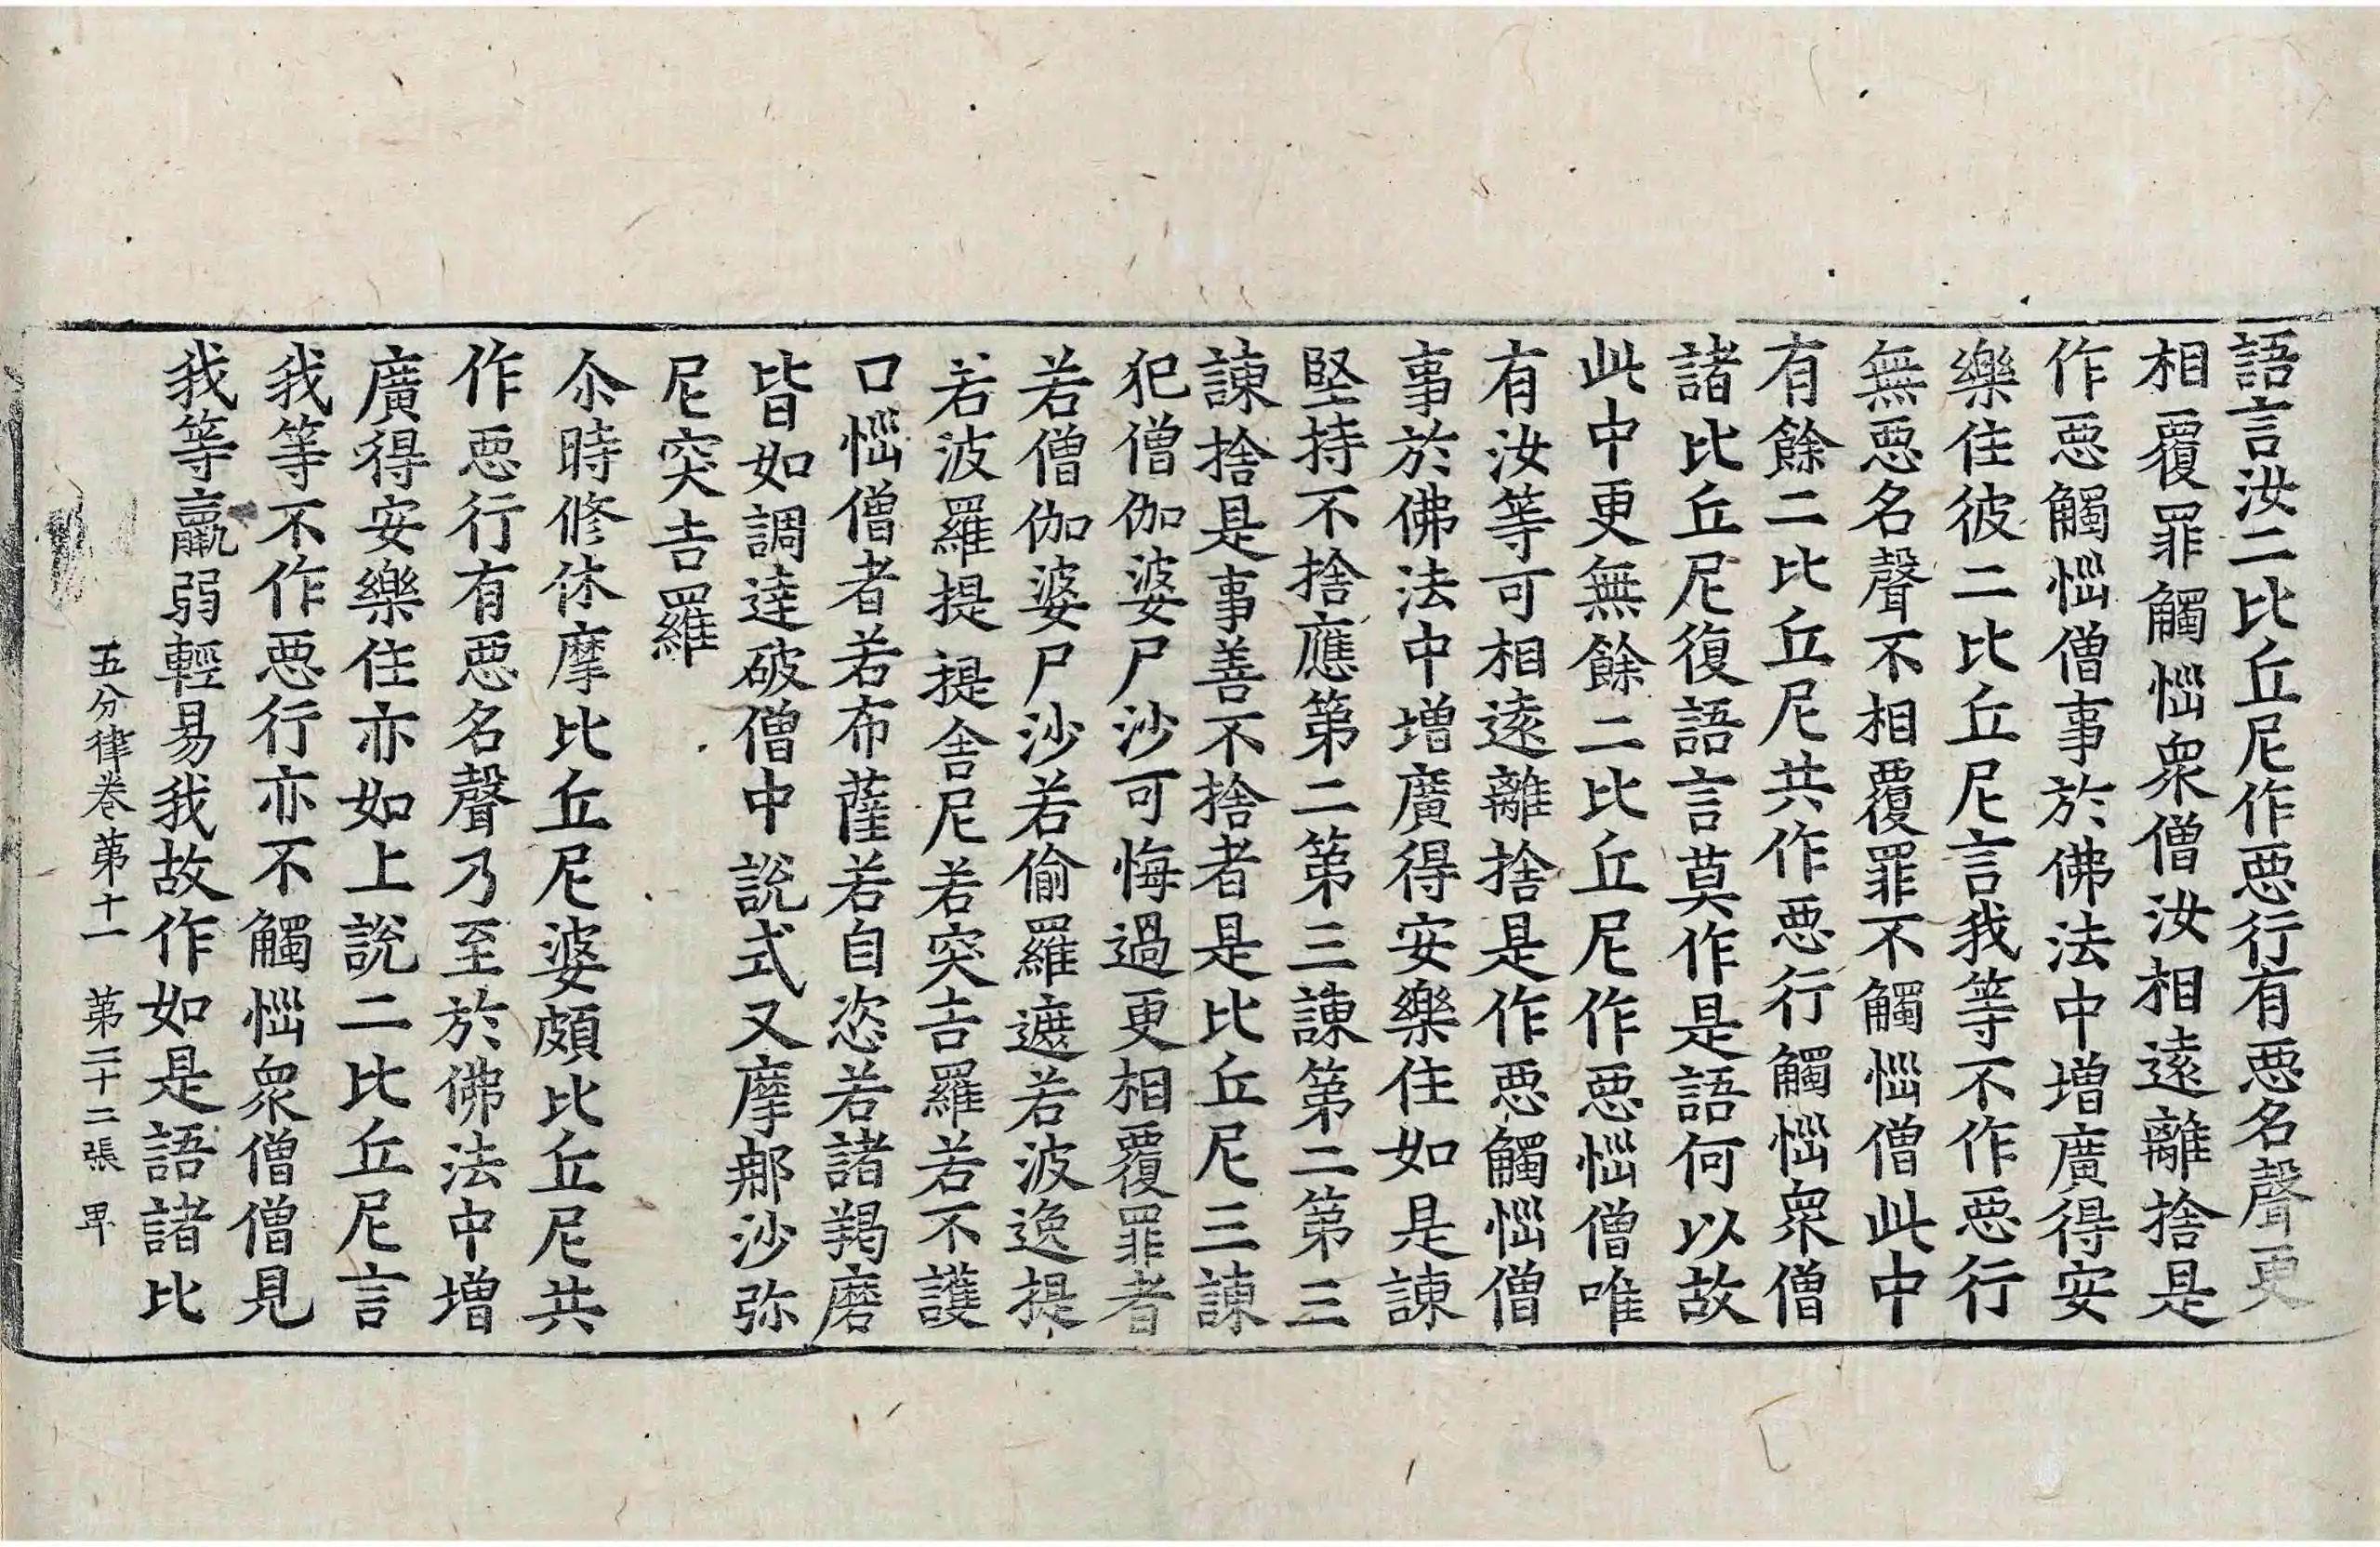 語言汝二比丘尼作惡行有惡名聲更
相覆罪觸惱衆僧汝相遠離捨是
作惡觸惱僧事於佛法中增廣得安
樂住彼二比丘尼言我等不作惡行
無惡名聲不相覆罪不觸惱僧此中
有餘二比丘尼共作惡行觸惱衆僧
諸比丘尼復語言莫作是語何以故
此中更無餘二比丘尼作惡惱僧唯
有汝等可相遠離捨是作惡觸惱僧
事於佛法中增廣得安樂住如是諫
堅持不捨應第二第三諫第二第三
諫捨是事善不捨者是比丘尼三諫
犯僧伽婆尸沙可悔過更相覆罪者
若僧伽婆尸沙若偷羅遮若波逸提
若波羅提提舍尼若突吉羅若不護
口惱僧者若布薩若自恣若諸羯磨
皆如調達破僧中說式叉摩那沙弥
尼突吉羅
尒時修休摩比丘尼婆頗比丘尼共
作惡行有惡名聲乃至於佛法中增
廣得安樂住亦如上說二比丘尼言
我等不作惡行亦不觸惱衆僧僧見
我等羸弱輕易我故作如是語諸比
五分律卷第十一 第二十二張 畢